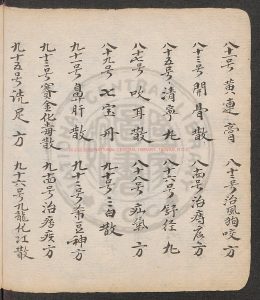 八十一号 黄連膏
八十二号治風狗咬方
八十三号 開骨散
八十四号治瘸症方
八十五号 清寧丸
八十六号舒経丸
八十七号 吹耳散
八十八号疝氣方
八十九号 七宝丹
九十号三白散
九十一号 鼻肝散
九十二号 神方
九十三号 賽金化毒散
九十四号治瘧疾方
九十五号 洗足方
九十六号九龍化江散